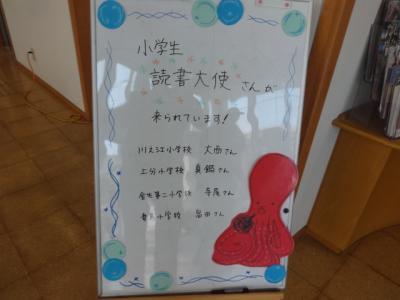 小学生
読書大使さんが
来られています!
川之江小学校 大西さん
上分小学校 真鍋さん
金生第二小学校 寺尾さん
小学校 さん